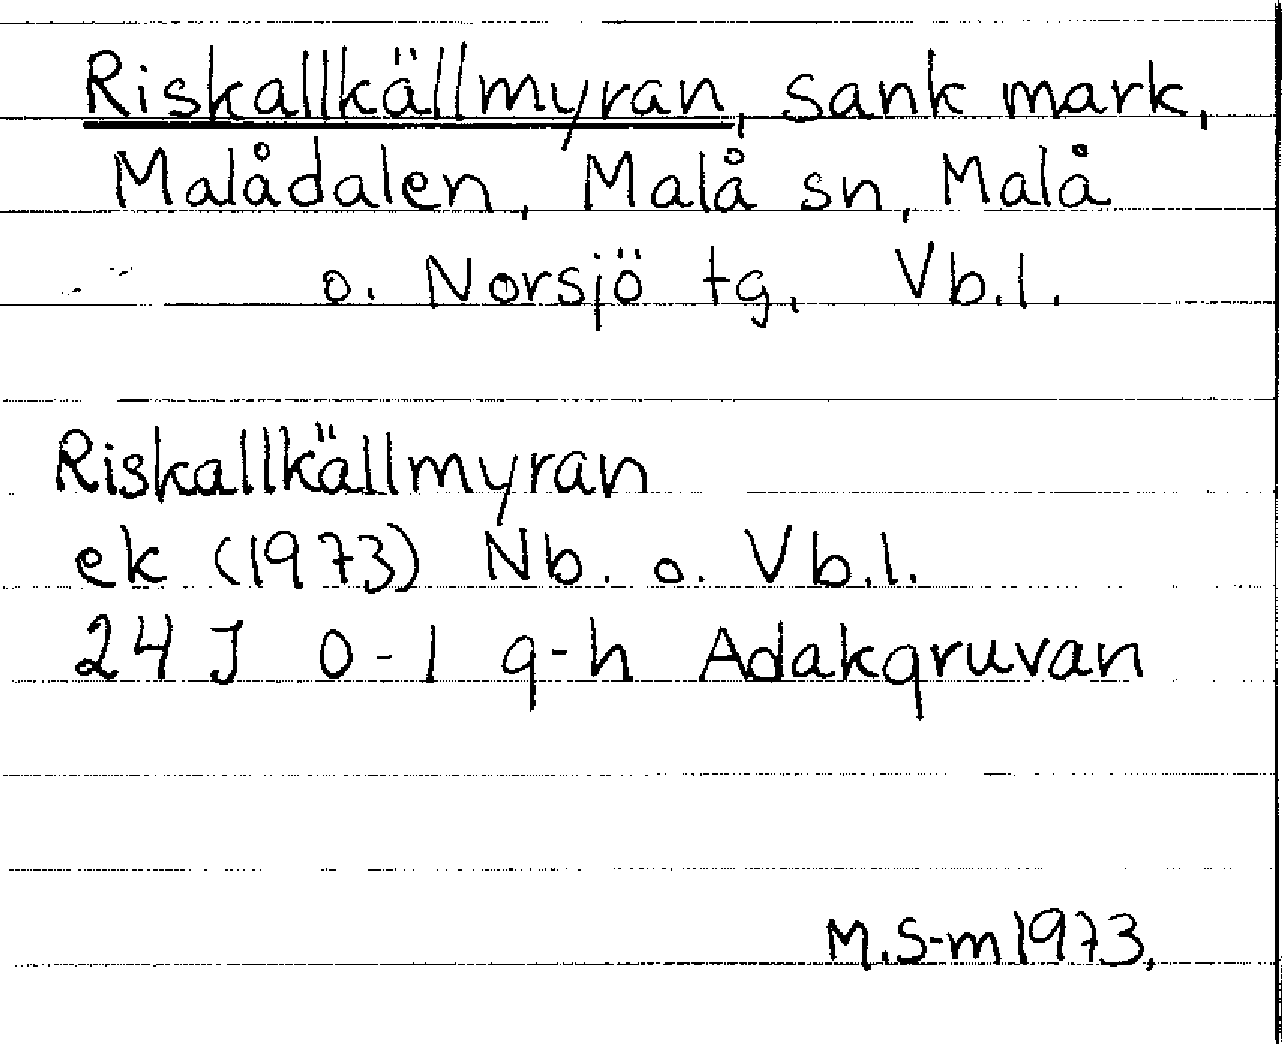 Riskallkällmyran, sank mark,
Malådalen, Malå sn, Malå
o. Norsjö tg, Vb.l.
Riskallkällmyran
ek (1973) Nb. o. Vb.l.
24 J 0-1 g-h Adakgruvan
M.S-m 1973,